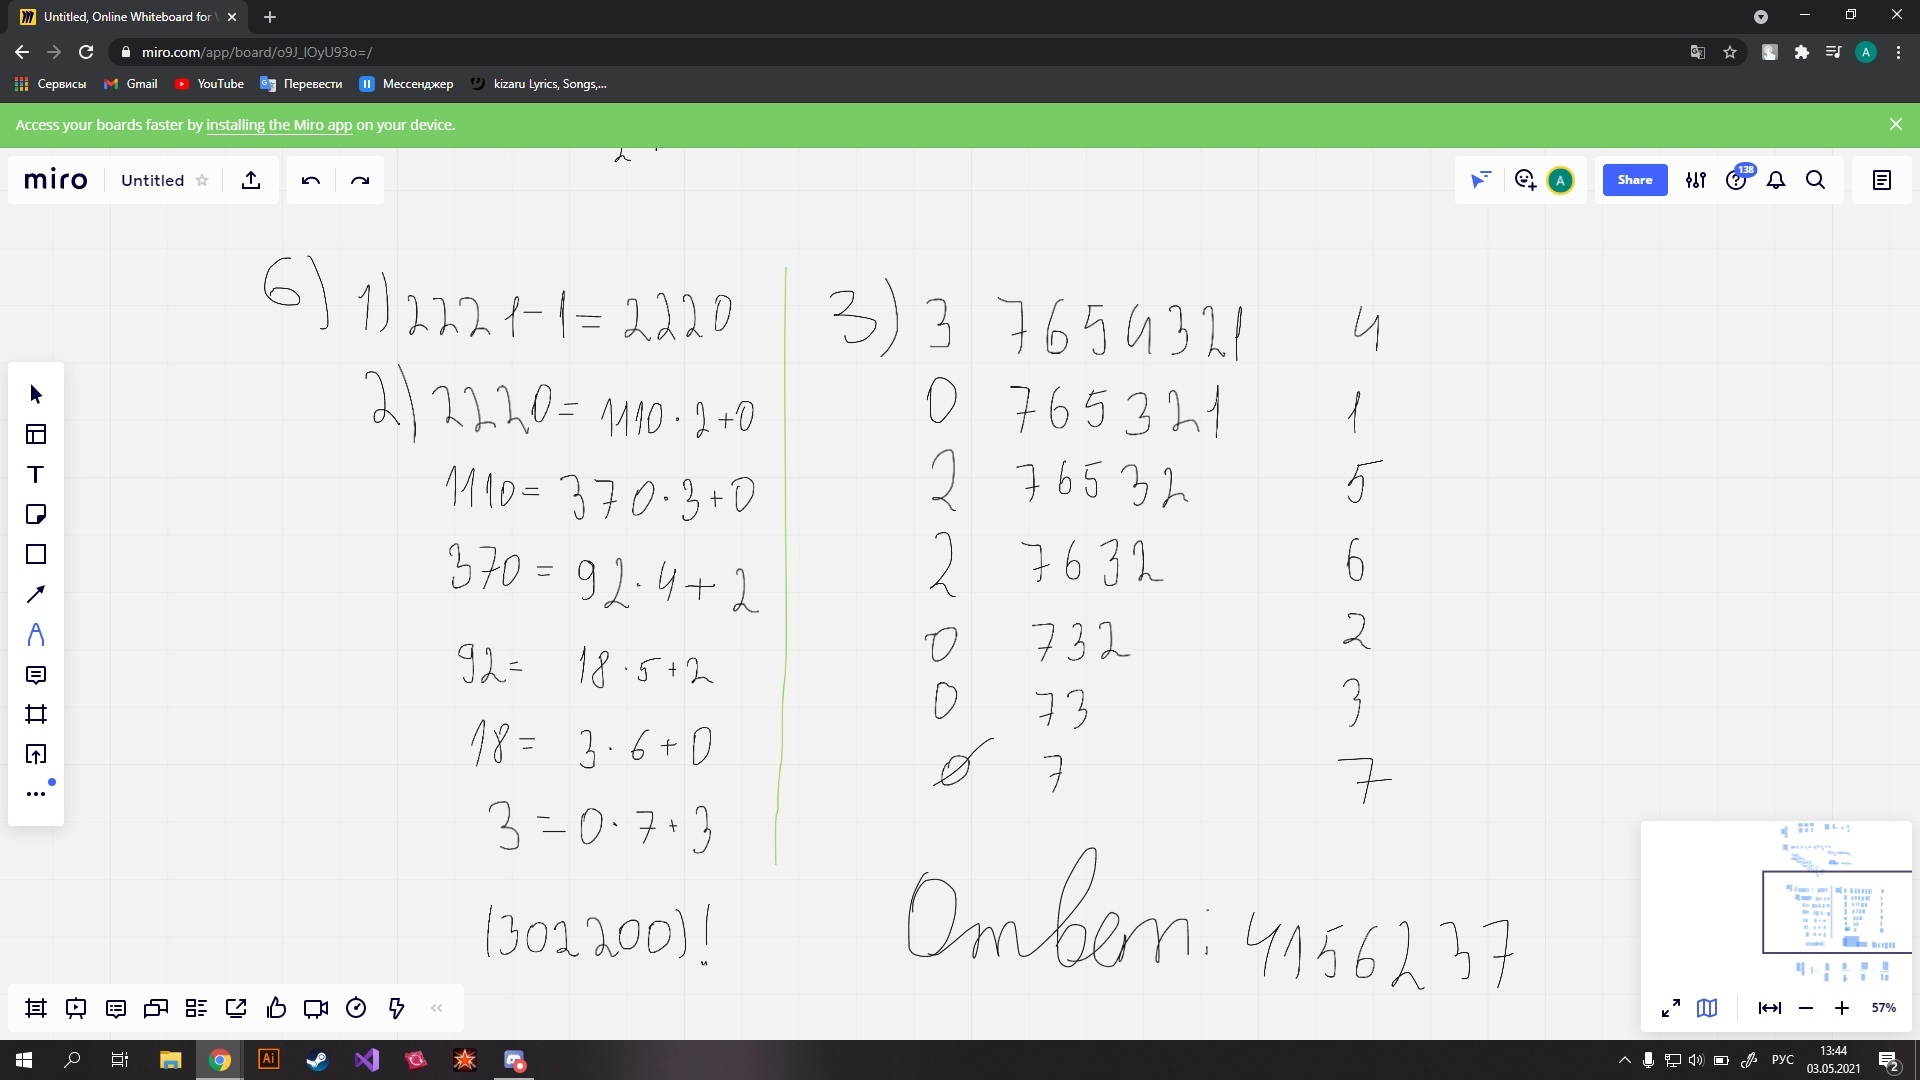 Untitled, Online Whiteboard for
miro.com/app/board/o9J_lOyU93o=/
A
Сервисы
Gmail
YouTube
Перевести
Мессенджер
kizaru Lyrics, Songs,...
Access your boards faster by installing the Miro app on your device.
miro
Untitled
A
Share
138
6) 1) 2221-1=2220
2) 2220= 1110·2+0
1110= 370·3+0
370= 92·4+2
92= 18·5+2
18= 3·6+0
3=0·7+3
(302200)!
3) 3 7654321 4
0 765321 1
2 76532 5
2 7632 6
0 732 2
0 73 3
0 7 7
Ответ: 4156237
57%
Ai
РУС
13:44
03.05.2021
2